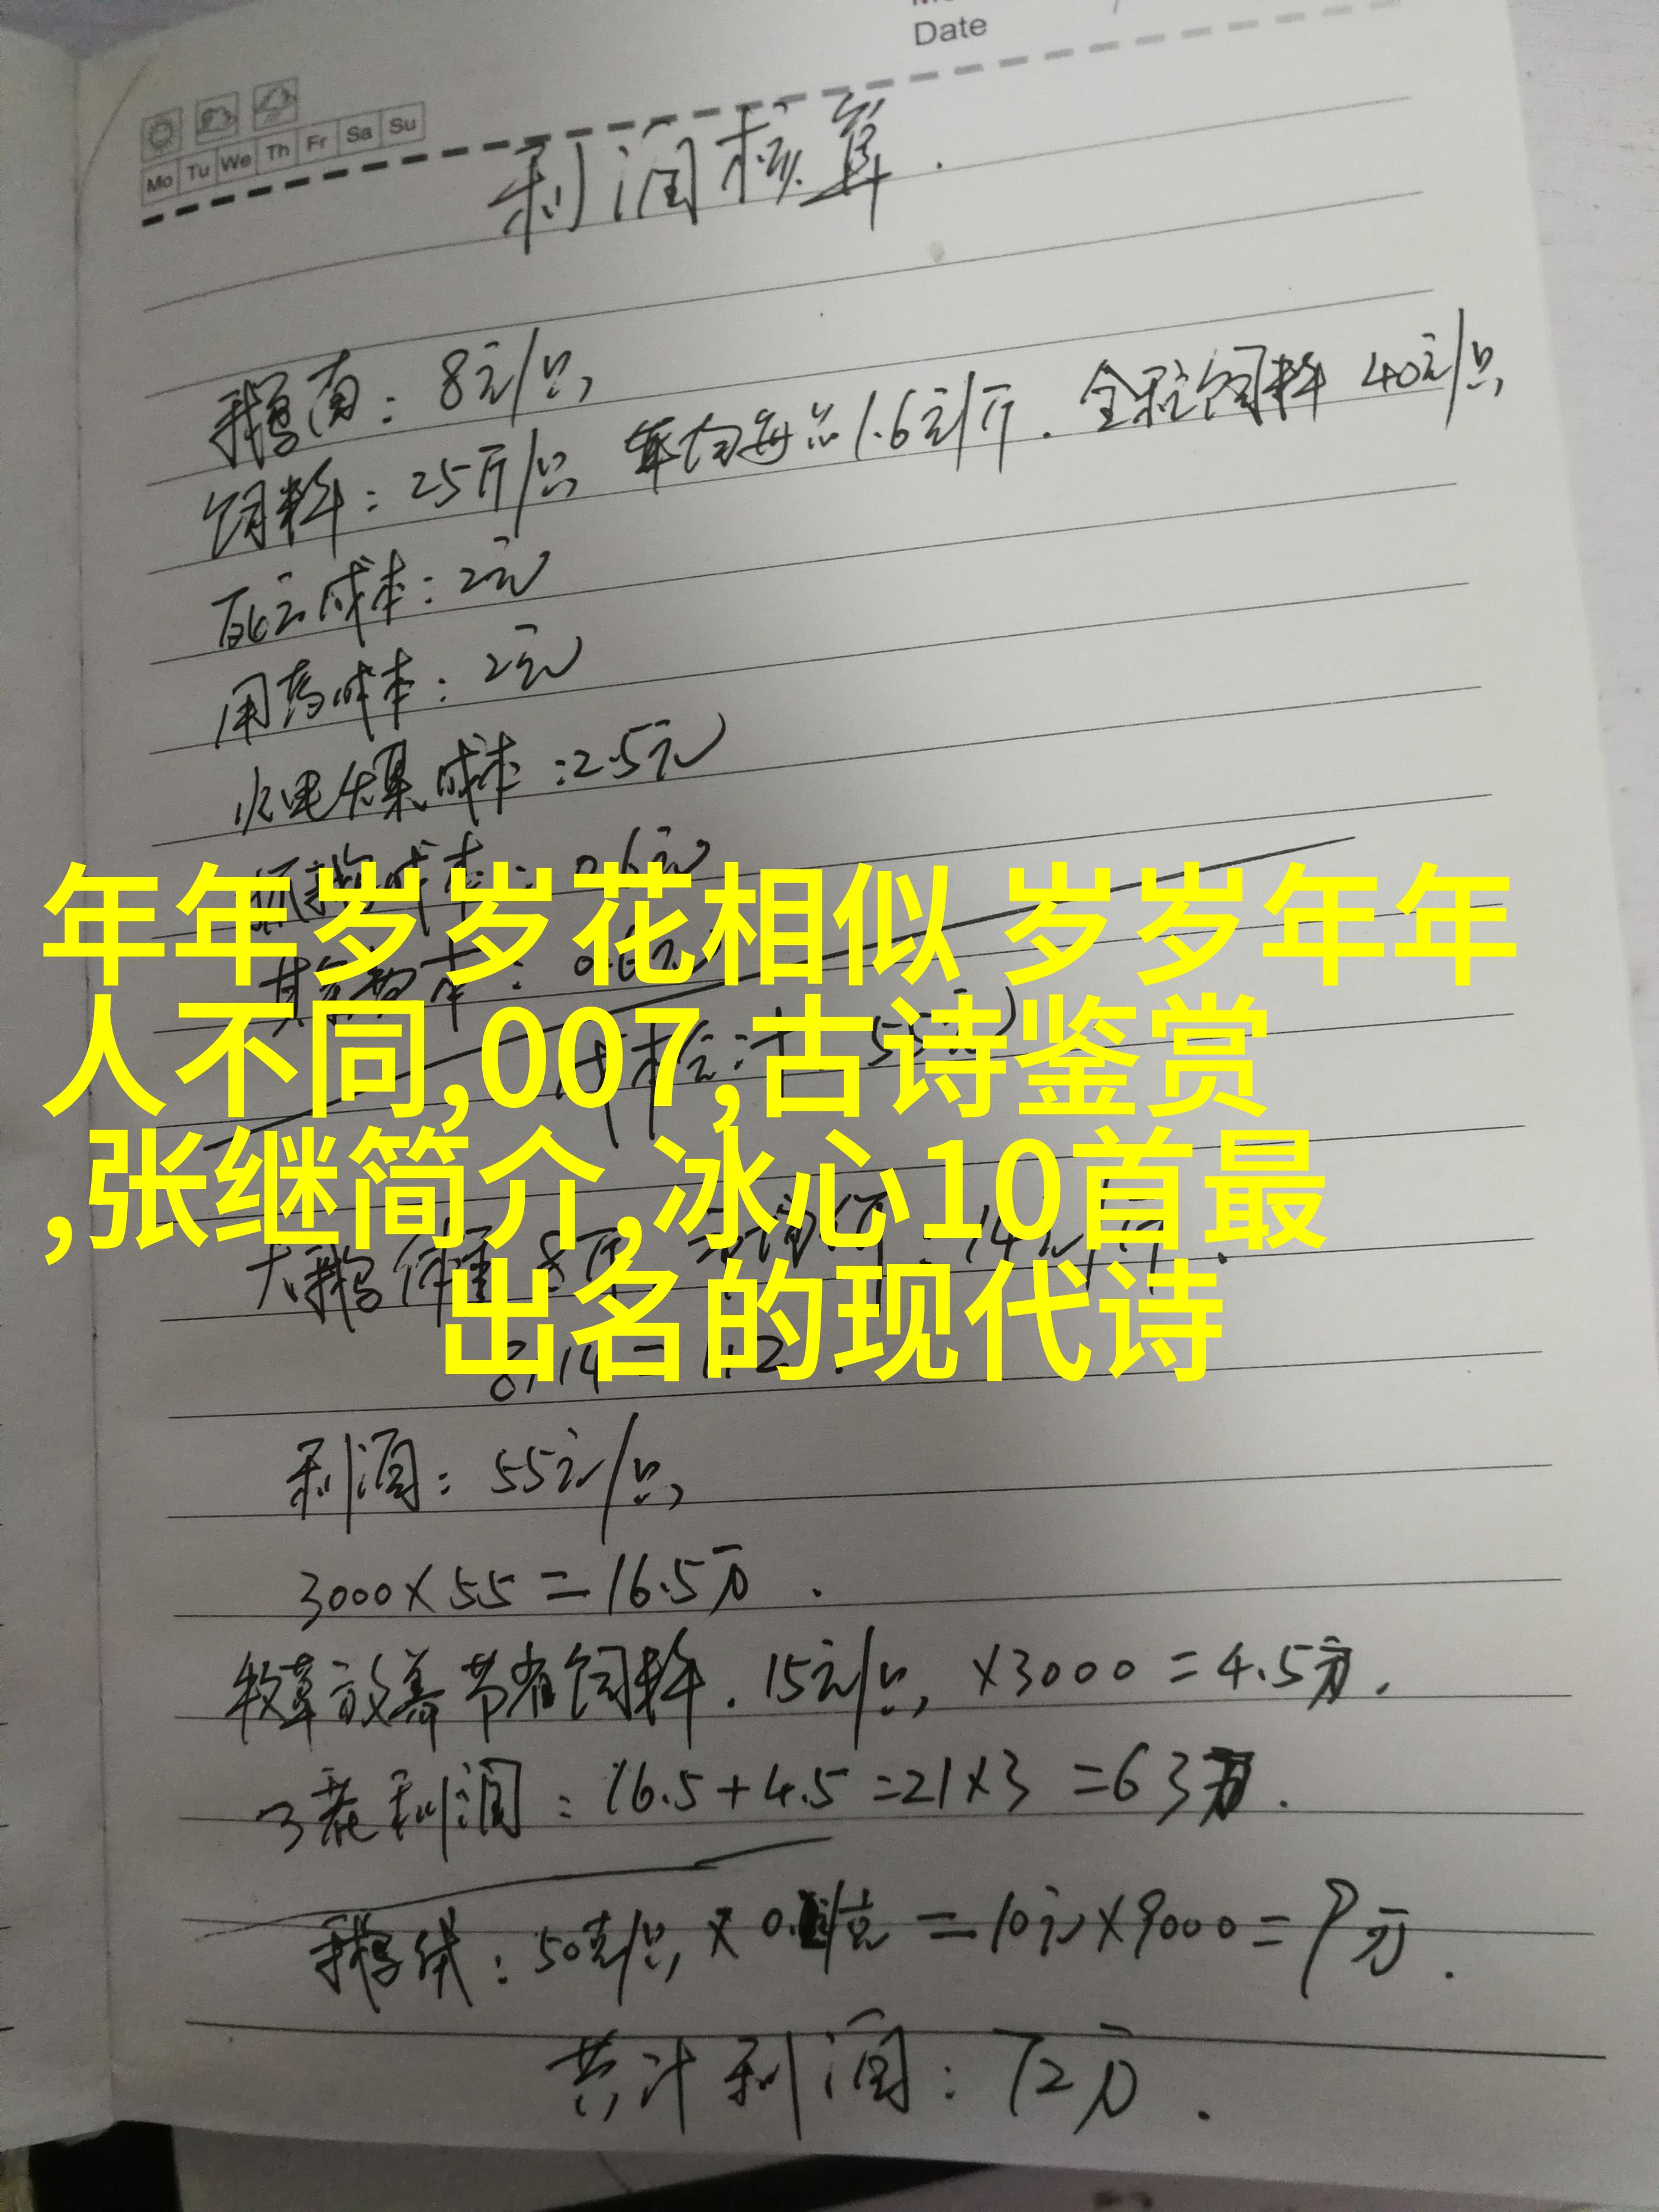 Date
Mo Tu We Th Fr Sa Su
利润核算.
鹅苗：8元/只
饲料：25斤/只 平均每斤1.6元/斤. 全程饲料 40元/只
死亡成本：2元
用药成本：2元
水电煤成本：2.5元
成本：0.6元
年年岁岁花相似 岁岁年年
人不同,007,古诗鉴赏
,张继简介,冰心10首最
大鹅体重 8斤
出名的现代诗
利润：55元/只
3000×55=16.5万.
牧草放养节省饲料. 15元/只, ×3000=4.5万.
3茬利润：16.5+4.5=21×3=63万.
鹅绒：50克/只 × =10元×9000=9万.
共计利润：72万.